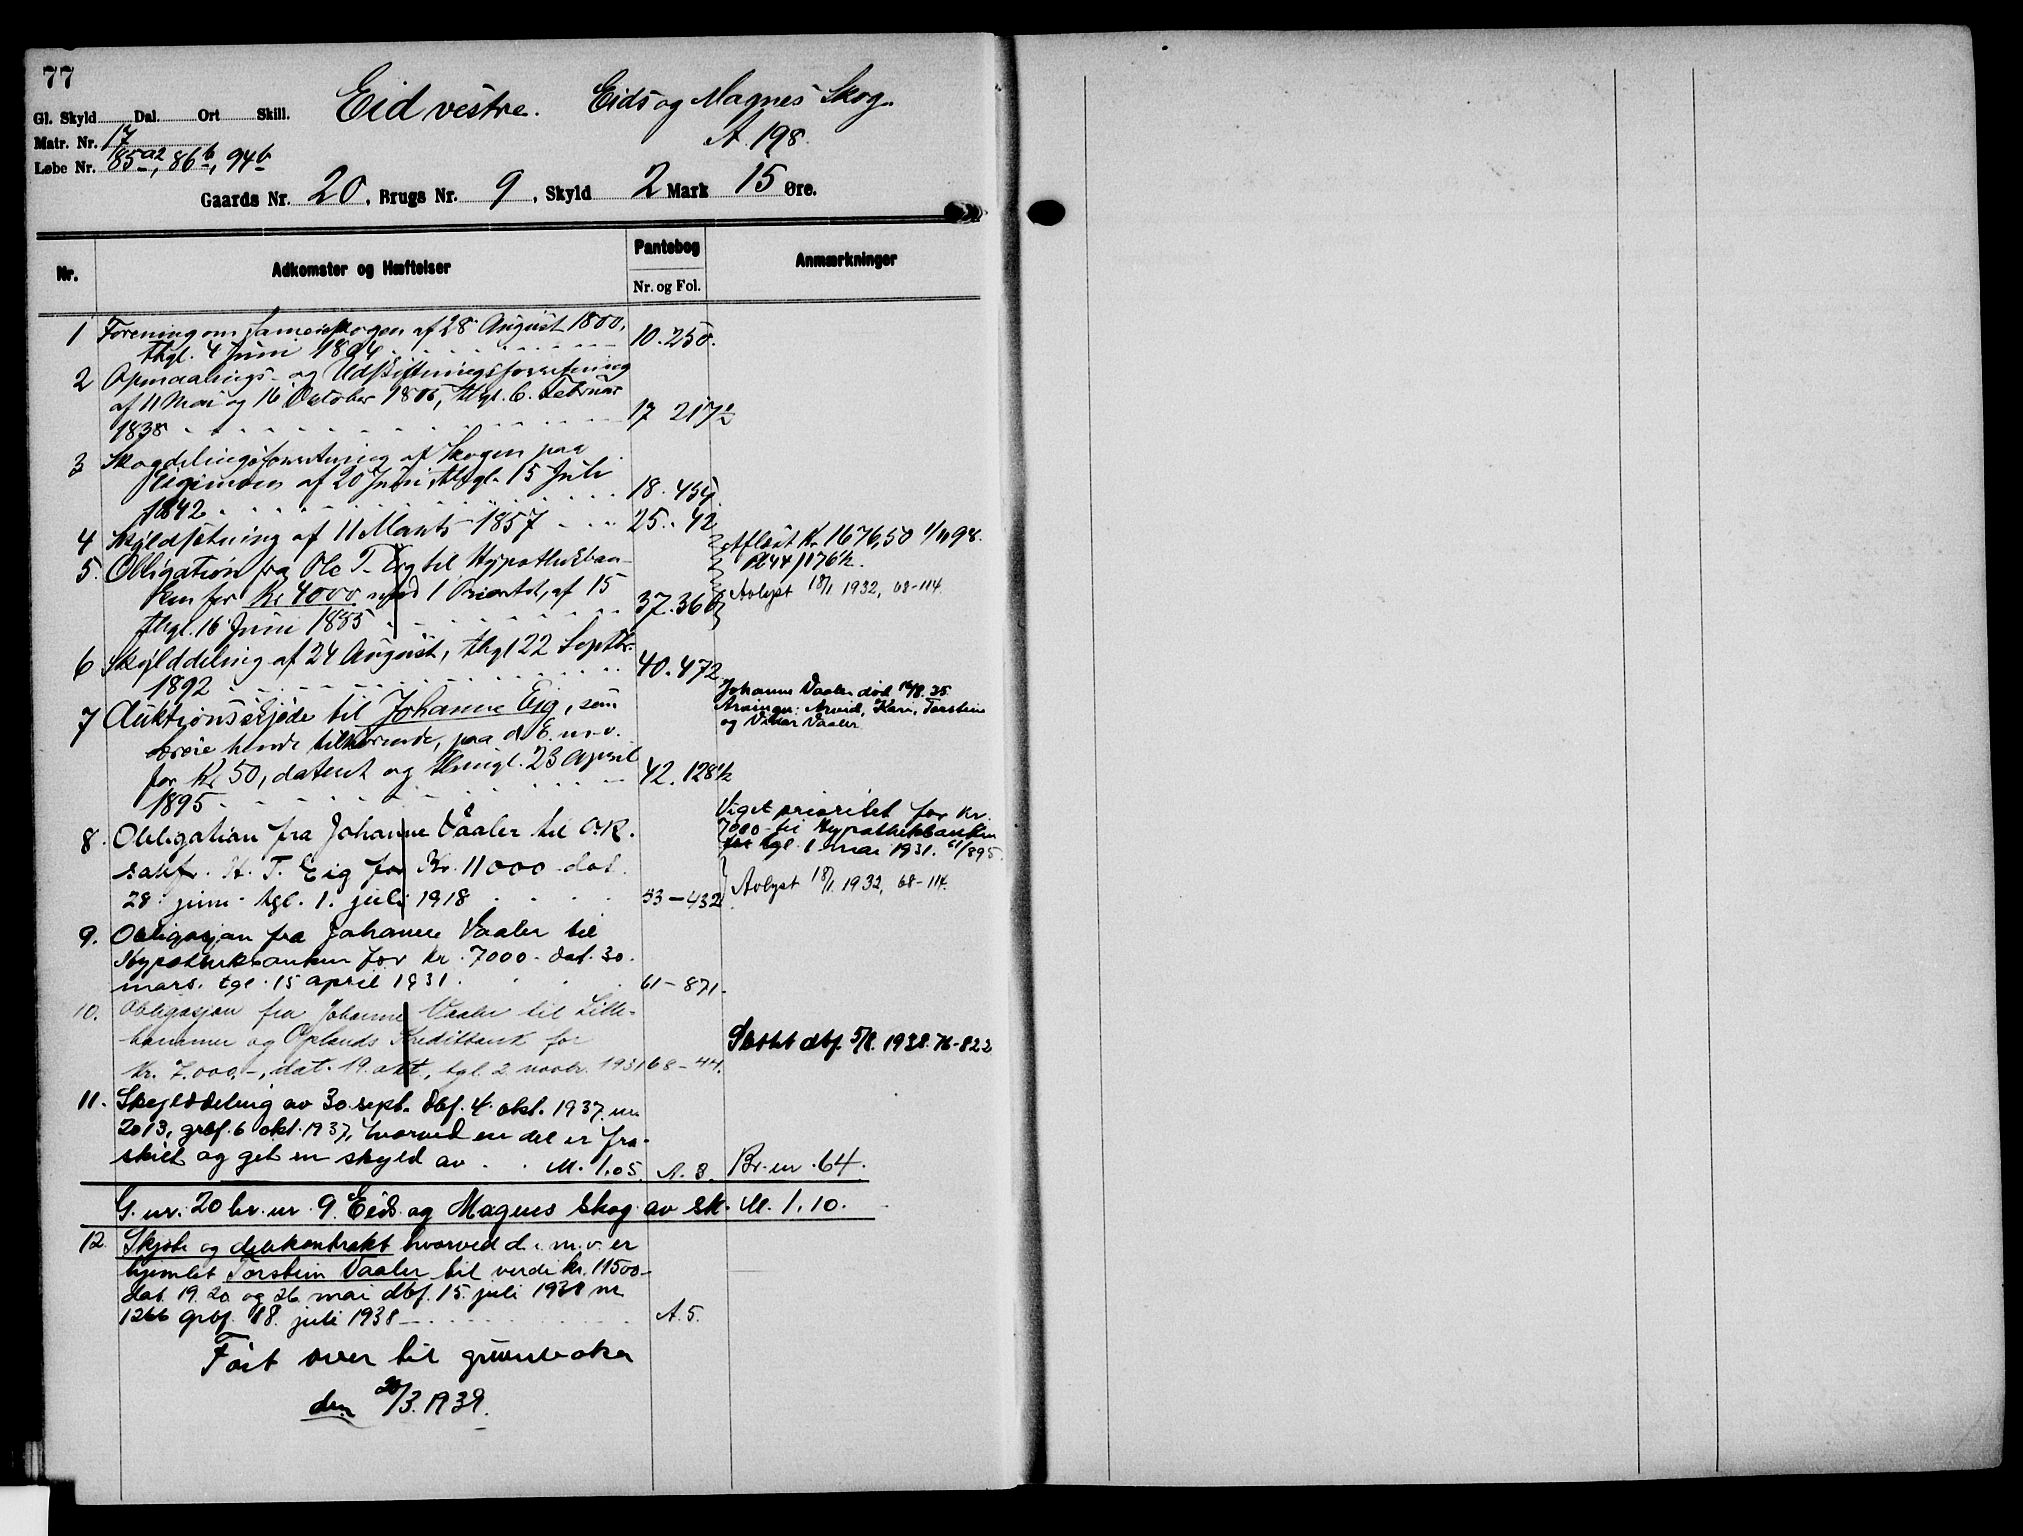 77
Eid vestre. Eids og Magnes Skog.
Gl. Skyld Dal. Ort Skill.
A 198.
Matr. Nr. 17
Løbe Nr. 85a2, 86b, 94b
Gaards Nr. 20, Brugs Nr. 9, Skyld 2 Mark 15 Øre.
Nr. Adkomster og Hæftelser Pantebog Anmærkninger
Nr. og Fol.
1 Forening om Sameieskogen af 28 August 1800,
thgl. 4 Juni 1804 10. 250.
2 Opmaalings- og Udskiftningsforretning
af 11 Mai og 16 October 1805, thgl. 6. Februar
1838 17 217½
3 Skogdelingsforretning af Skogen paa
af 20 Juni, thgl. 15 Juli
1842 18. 454.
4 Skyldsætning af 11 Marts 1857 25. 42
5. Obligation fra Ole T. Eig til Hypothekban-
ken for Kr 4000 med 1 Prioritet, af 15
thgl. 16 Juni 1885 37. 366
Afløst Kr. 1676,50 1/11 98.
Pb 44/176½.
Avlyst 18/1 1932, 68-114.
6 Skylddeling af 24 August, thgl 22 Septbr.
1892 40. 472
7 Auktionsskjøde til Johanne Eig, som
særeie hende tilhørende, paa d. E. m. v.
for Kr 50, dateret og thingl. 23 April
1895 42. 128½
Johanne Vaaler død 16/8. 35
Arvinger: Arvid, Kari, Torstein
og Vidar Vaaler
8. Obligation fra Johanne Vaaler til O.R.
sakfr. H. T. Eig for Kr. 11000 dat.
28 juni - tgl. 1. juli 1918 53-432
Viget prioritet for kr.
7000 - til Hypothekbanken
tgl. 1 mai 1931. 61/895.
Avlyst 18/1 1932, 68-114.
9. Obligasjon fra Johanne Vaaler til
Hypothekbanken for kr. 7000 - dat. 30.
mars. tgl. 15 april 1931. 61-871.
10. Obligasjon fra Johanne Vaaler til Lille-
hammer og Oplands Kreditbank for
kr. 7.000.-, dat. 19. okt, tgl. 2. novbr. 1931 68-44.
Slettet dbf. 5/8. 1938. 76-822
11. Skylddeling av 30. sept. dbf. 4. okt. 1937. nr.
2013, grbf. 6 okt. 1937, hvorved en del er fra-
skilt og git en skyld av M. 1.05. A. 3. Br. nr. 64.
G. nr. 20 br. nr. 9. Eids og Magnes skog av sk. M. 1.10.
12. Skjøte og delekontrakt hvorved d. e. m. v. er
hjemlet Torstein Vaaler til verdi kr. 11500 -
dat. 19. 20 og 26. mai dbf. 15. juli 1938 nr
1266 grbf. 18. juli 1938 A. 5.
Ført over til grunnboka
den 20/3. 1939.